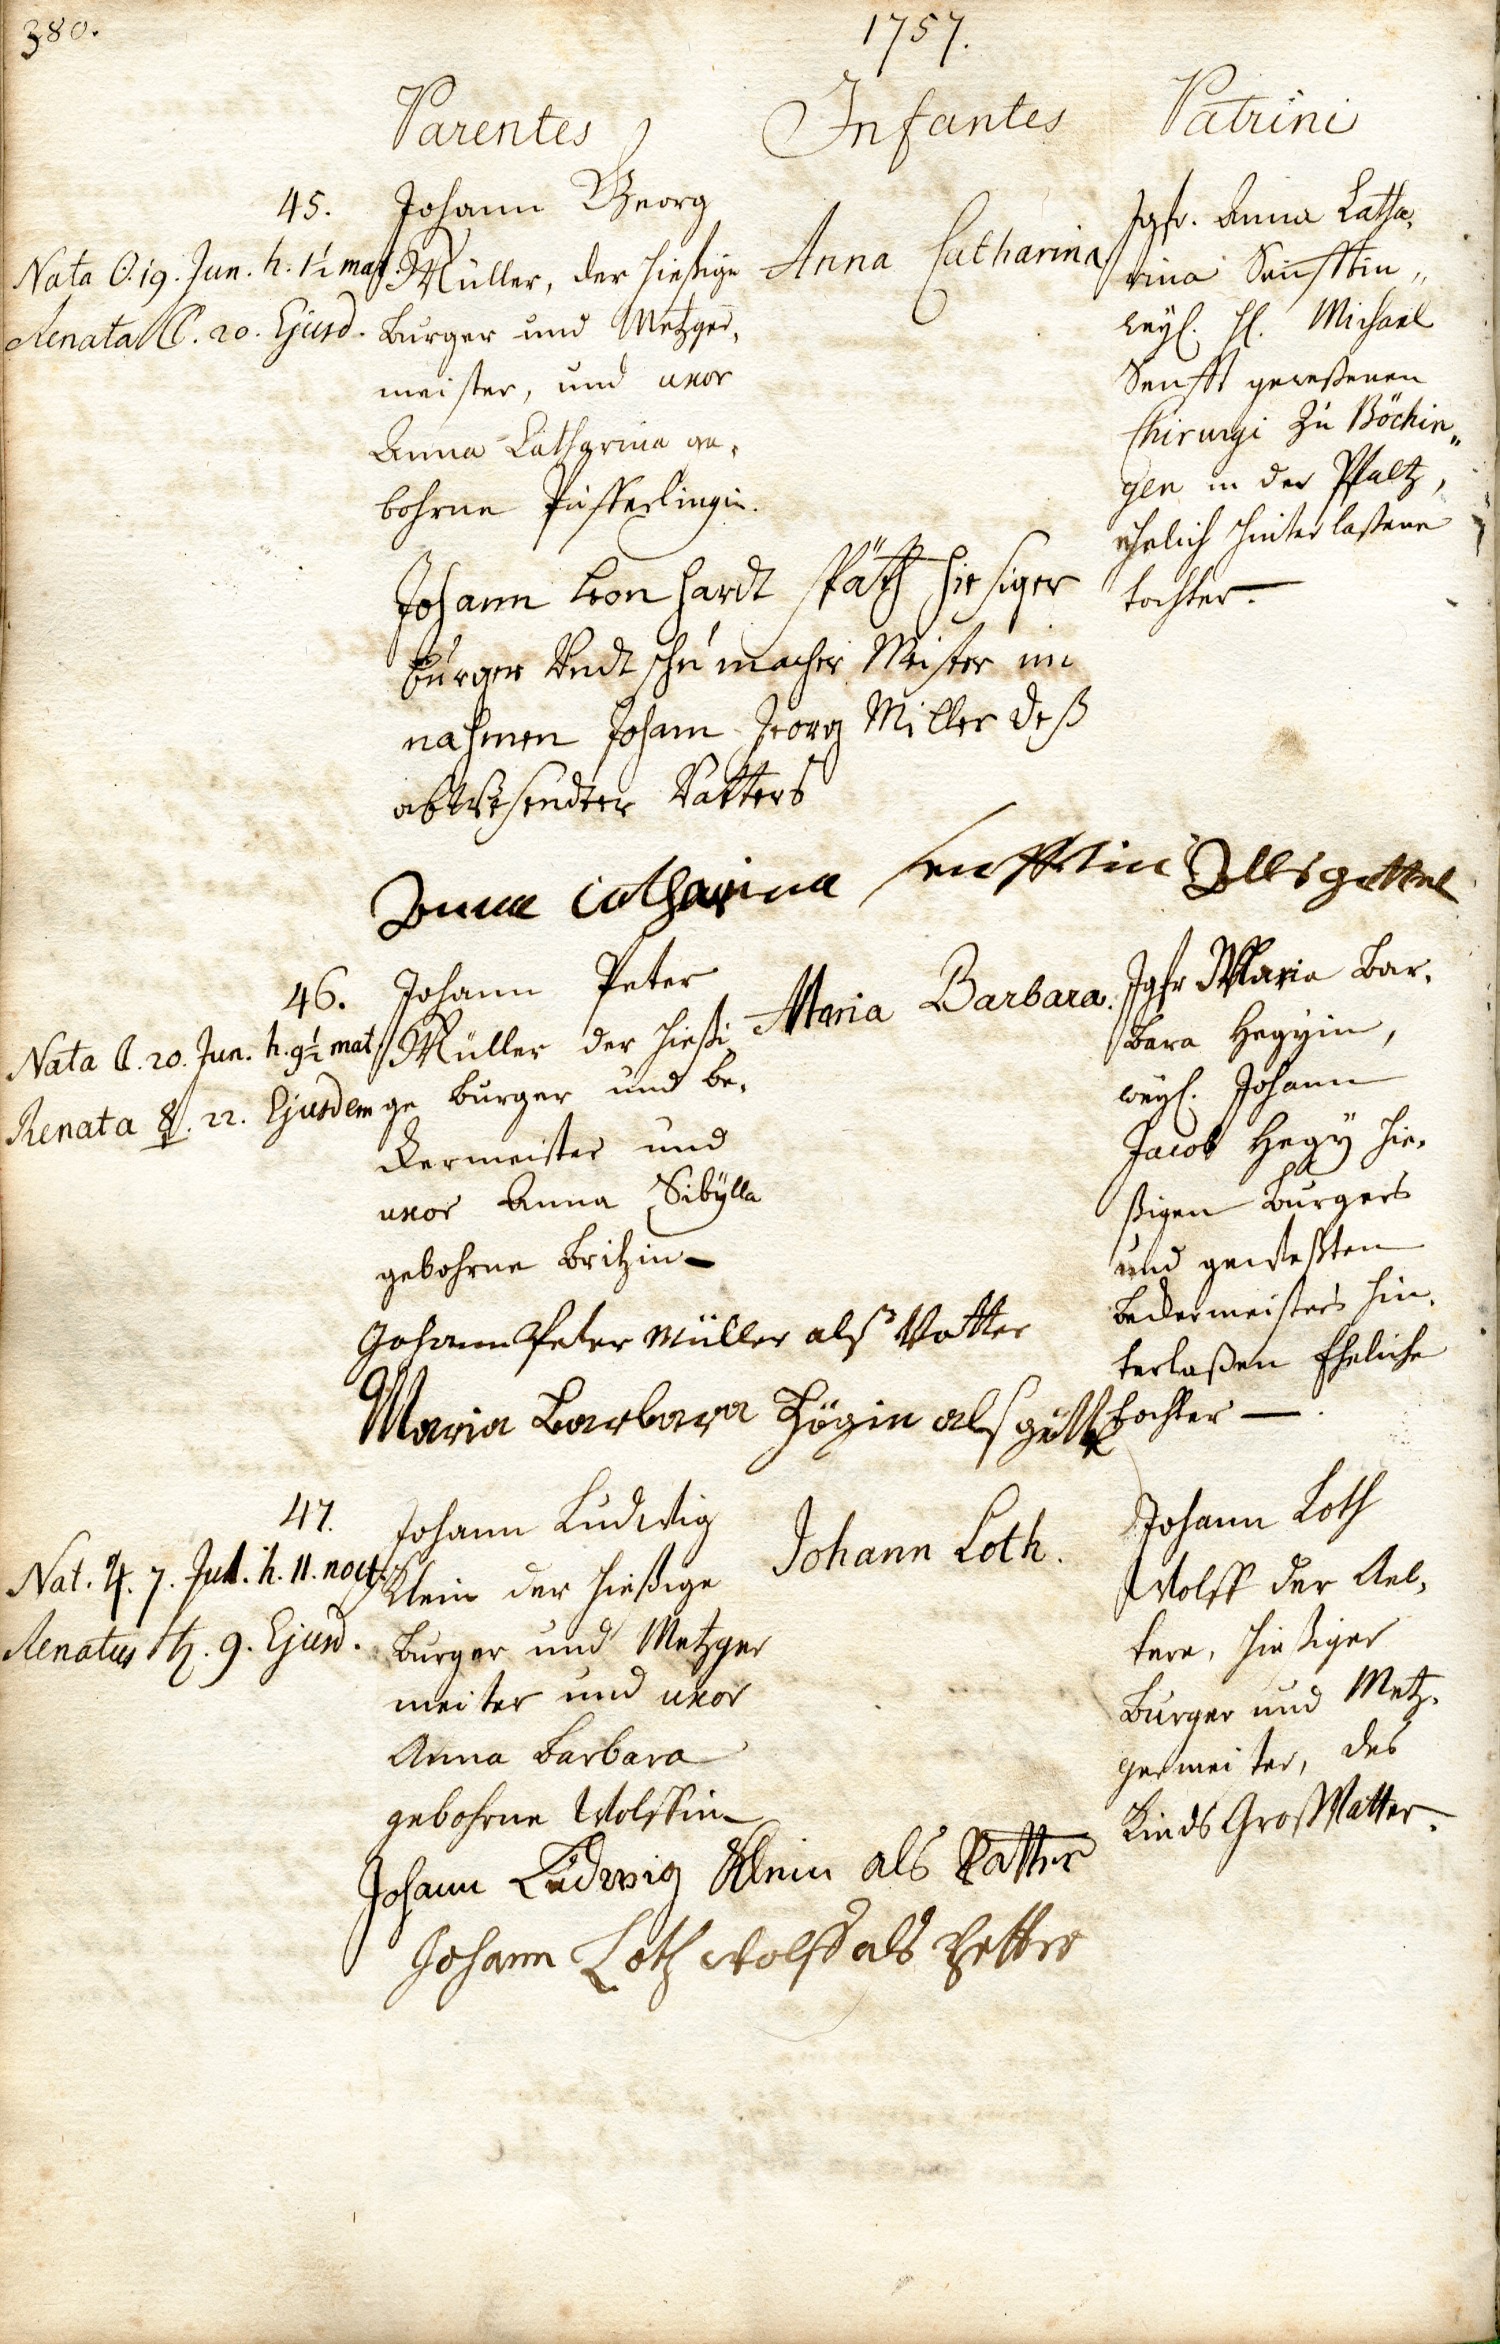 380.
1757.
Parentes
Infantes
Patrini
45.
Nata ☉. 19. Jun. h. 1½ mat.
Renata ☾. 20. Ejusd.
Johann Georg
Müller, der hießige
Burger und Metzger,
meister, und uxor
Anna Catharina ge,
bohrne Pfifferlingin.
Anna Catharina
Jgfr. Anna Catha,
rina Senfftin,,
weyl. H. Michael
Senfft geweßenen
Chirurgi zu Böchin,,
gen in der Pfaltz,
ehelich hinterlaßene
tochter.
Johann Leonhardt Späth hiesiger
burger Undt schumacher Meister im
nahmen Johann Jeorg Miller deß
abwesendter Vatters
Anna Catharina senfftin Allsgettel
46.
Nata ☾. 20. Jun. h. 9½ mat.
Renata ☿. 22. Ejusdem
Johann Peter
Müller der hießi,
ge Burger und Be,
ckermeister und
uxor Anna Sibÿlla
gebohrne Britzin
Maria Barbara.
Jgfr Maria Bar,
bara Hegyin,
weyl. Johann
Jacob Hegÿ hie,
ßigen Burgers
und geweßten
Beckermeisters hin,
terlaßen Eheliche
tochter.
Johann Peter Müller alß Vatter
Maria Barbara Högin als gött
47.
Nat. ♃. 7. Jul. h. 11. noct.
Renatus ♄. 9. Ejusd.
Johann Ludwig
Klein der hießige
Burger und Metzger
meister und uxor
Anna Barbara
gebohrne Wolffin
Johann Loth.
Johann Loth
Wolff der Ael,
tere, hießiger
Burger und Metz,
germeister, des
Kinds GroßVatter.
Johann Ludwig Klein als Vatter
Johann Loth wolff als Petter